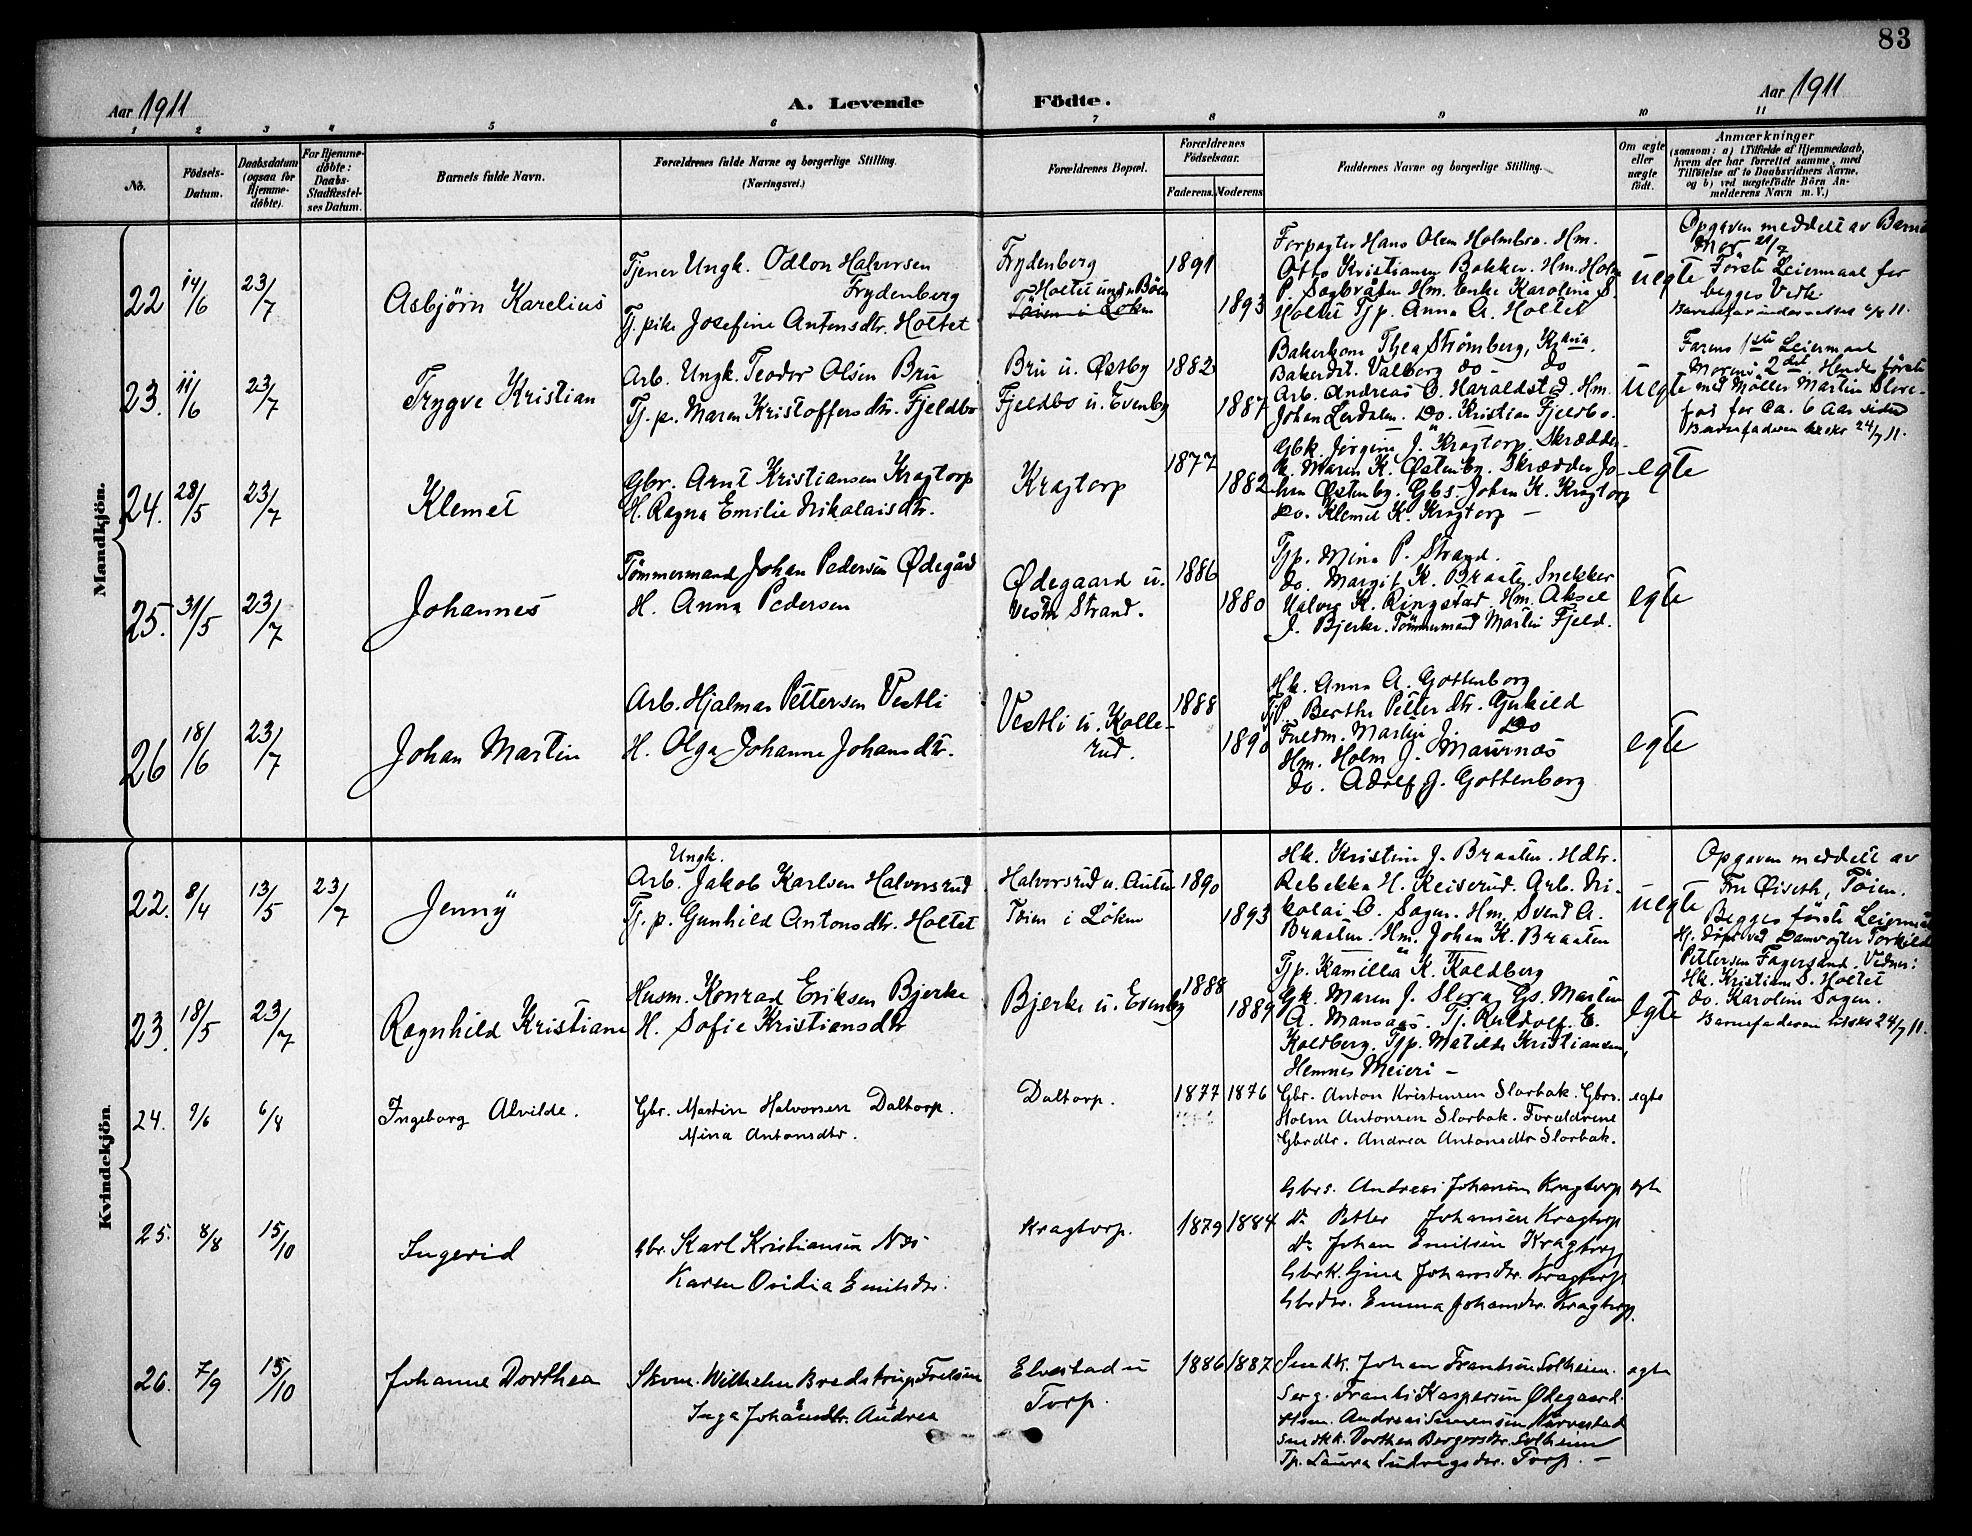 83
Aar 1911
A. Levende Födte.
Aar 1911
1 2 3 4 5 6 7 8 9 10 11
No.
Födsels-
Datum.
Daabsdatum
(ogsaa for
Hjemme-
döbte).
For Hjemme-
döbte:
Daabs-
Stadfæstel-
ses Datum.
Barnets fulde Navn.
Forældrenes fulde Navne og borgerlige Stilling.
(Næringsvei.)
Forældrenes Bopæl.
Forældrenes
Födselsaar.
Faderens. Moderens.
Faddernes Navne og borgerlige Stilling.
Om ægte
eller
uægte
født.
Anmærkninger
(saasom: a) i Tilfælde af Hjemmedaab,
hvem der har forrettet samme, med
Tilföielse af to Daabsvidners Navne,
og b) ved uægtefödte Börn An-
melderens Navn m. V.)
Mandkjön.
22
14/6
23/7
Asbjörn Karelius
Tjener Ungk. Odlon Halvorsen
Frydenberg
Tj. pike Josefine Antonsdtr. Holtet
Frydenberg
Holtet under Böen
Töien i Löken
1891
1893
Forpagter Hans Olsen Holmbro. Hm.
Otto Kristiansen Bakker. Hm. Holm
P. Sagbråten Hm. Enke Karoline S.
Holtet Tjp. Anna A. Holtet
uegte
Opgaven meddelt av Barnets
Mor 21/7
Förste Leiermaal for
begges Vedk.
23.
11/6
23/7
Trygve Kristian
Arb. Ungk. Teodor Olsen Bru
Tj. p. Maren Kristoffersdtr. Fjeldbo
Bru u. Østby
Fjeldbo u. Evenby
1882
1887
Bakerkone Thea Strømberg, Krania.
Bakerdt. Valborg do - do
Arb. Andreas O. Haraldstad. Hm.
Johan Lerdalen. Do. Kristian Fjeldbo.
uegte
Farens 1ste Leiermaal
Morens 2det. Hendes förste
med Möller Martin Slore-
fos for ca. 6 Aar siden
Barnefaderen 24/7 11.
24.
28/5
23/7
Klemet
Gbr. Arnt Kristiansen Kragtorp
H. Ragna Emilie Nikolaisdtr.
Kragtorp
1877
1882
Gbk. Jörgine J. Kragtorp, Skrædder-
k. Maren K. Østenby. Skrædder Jo-
han Østenby. Gbs. Johan K. Kragtorp
Do. Klemet K. Kragtorp —
egte
25.
31/5
23/7
Johannes
Tömmermand Johan Pedersen Ødegård
H. Anna Pedersen
Ødegaard u.
Vestre Strand.
1886
1880
Tjp. Mina P. Strand.
do. Margit K. Braaten. Snekker
Halvor K. Ringstad. Hm. Aksel
J. Bjerke. Tömmermand Martin Fjeld.
egte
26
18/6
23/7
Johan Martin
Arb. Hjalmar Pettersen Vestli
H. Olga Johanne Johansdtr.
Vestli u. Kolle-
rud.
1888
1890
Hk. Anna A. Gottenborg
Tjp. Berthe Petterdtr. Guhild
Fuldm. Martin J. Do
Hm. Holm J. Maurnæs
do. Adolf J. Gottenborg
egte
Kvindekjön.
22.
8/4
13/5
23/7
Jenny
Ungk.
Arb. Jakob Karlsen Halvorsrud
Tj. p. Gunhild Antonsdtr. Holtet
Halvorsrud u. Auten
Töien i Löken
1890
1893
Hk. Kristine J. Braaten. Hdtr.
Rebekka H. Keiserud. Arb. Ni-
kolai O. Sogen. Hm. Svend A.
Braaten. Hm. Johan K. Braaten
uegte
Opgaven meddelt av
Fru Øiseth, Töien.
Begges förste Leiermaal
Hj. döpt ved Damvogter Torkild
Pettersen Fagersand. Vidner:
Hk. Kristiane S. Holtet
do. Karoline Sogen.
Barnefaderen 24/7 11.
23.
18/5
23/7
Ragnhild Kristiane
Husm. Konrad Eriksen Bjerke
H. Sofie Kristiansdtr
Bjerke u. Evenby
1888
1889
Tjp. Kamilla K. Koldberg
Gk. Maren J. Slora, Gs. Martin
A. Mansaas. Tj. Ruldolf E.
Koldberg. Tjp. Matilde Kristiansen,
Hemnes Meieri —
egte
24.
9/6
6/8
Ingeborg Alvilde.
Gbr. Martin Halvorsen Daltorp.
Mina Antonsdtr.
Daltorp.
1877
1876
Gbr. Anton Kristensen Slorbak. Gbrs.
Holm Antonsen Slorbak. Forældrene
Gbrdtr. Andrea Antonsdtr Slorbak.
egte
25.
8/8
15/10
Ingerid
Gbr. Karl Kristiansen Næs
Karen Ovidia Emilsdtr.
Kragtorp.
1879
1884
Gbrs. Andreas Johansen Kragtorp
do Petter Johansen Kragtorp
do Johan Emilsen Kragtorp
Gbrk. Gina Johansdtr. Kragtorp
Gbrdtr. Emma Johansdtr. Kragtorp.
egte
26.
7/9
15/10
Johanne Dorthea
Skom. Wilhelm Bredstrup Frelsen
Inga Johansdtr. Andrea
Elvestad u
Torp.
1886
1887
Smdk. Johan Frantsen Solheim.
Serg. Frants Kaspersen Ødegaard.
Andreas Simensen Narvestad
Smdkk. Dorthea Borgersdtr. Solheim
Tp. Laura Ludvigsdtr. Torp. —
egte